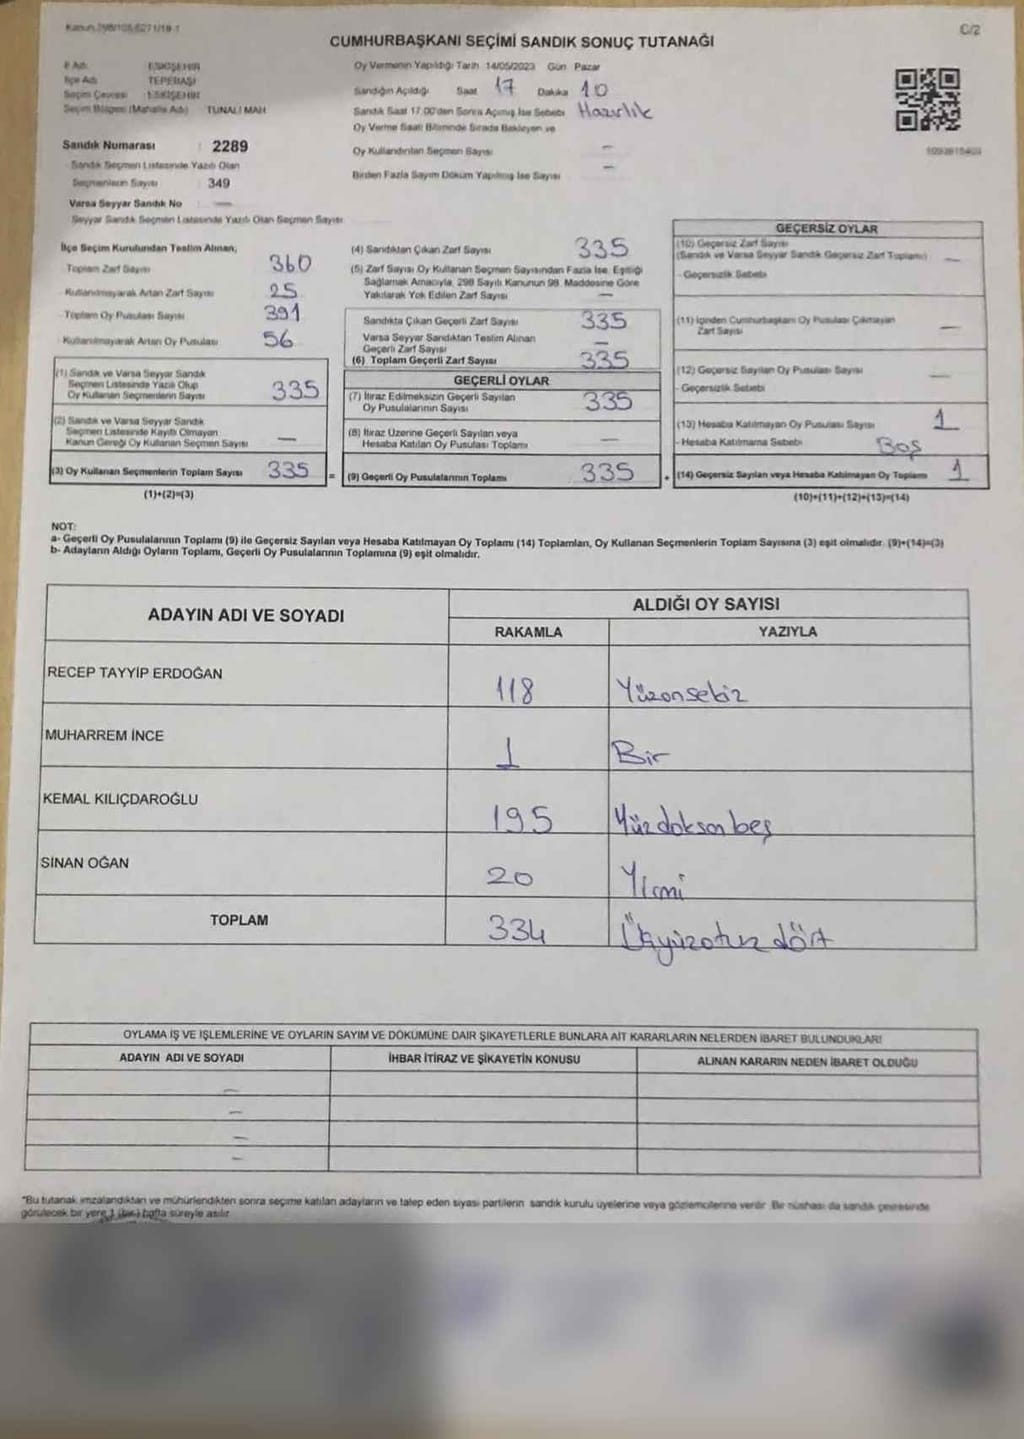 CUMHURBAŞKANI SEÇİMİ SANDIK SONUÇ TUTANAĞI
C/2
İl Adı : ESKİŞEHİR
İlçe Adı : TEPEBAŞI
Seçim Çevresi : ESKİŞEHİR
Seçim Bölgesi (Mahalle Adı) : TUNALI MAH.
Sandık Numarası : 2289
Sandık Seçmen Listesinde Yazılı Olan
Seçmenlerin Sayısı : 349
Varsa Seyyar Sandık No : —
Seyyar Sandık Seçmen Listesinde Yazılı Olan Seçmen Sayısı
Oy Vermenin Yapıldığı Tarih 14/05/2023 Gün Pazar
Sandığın Açıldığı Saat 17 Dakika 10
Sandık Saat 17.00'den Sonra Açılmış İse Sebebi Hazırlık
Oy Verme Saati Bitiminde Sırada Bekleyen ve
Oy Kullandırılan Seçmen Sayısı —
Birden Fazla Sayım Döküm Yapılmış İse Sayısı —
İlçe Seçim Kurulundan Teslim Alınan;
Toplam Zarf Sayısı 360
Kullanılmayarak Artan Zarf Sayısı 25
Toplam Oy Pusulası Sayısı 391
Kullanılmayarak Artan Oy Pusulası 56
(1) Sandık ve Varsa Seyyar Sandık
Seçmen Listesinde Yazılı Olup
Oy Kullanan Seçmenlerin Sayısı 335
(2) Sandık ve Varsa Seyyar Sandık
Seçmen Listesinde Kayıtlı Olmayan
Kanun Gereği Oy Kullanan Seçmen Sayısı —
(3) Oy Kullanan Seçmenlerin Toplam Sayısı 335 =
(1)+(2)=(3)
(4) Sandıktan Çıkan Zarf Sayısı 335
(5) Zarf Sayısı Oy Kullanan Seçmen Sayısından Fazla İse, Eşitliği
Sağlamak Amacıyla, 298 Sayılı Kanunun 98. Maddesine Göre
Yakılarak Yok Edilen Zarf Sayısı —
Sandıkta Çıkan Geçerli Zarf Sayısı 335
Varsa Seyyar Sandıktan Teslim Alınan
Geçerli Zarf Sayısı —
(6) Toplam Geçerli Zarf Sayısı 335
GEÇERLİ OYLAR
(7) İtiraz Edilmeksizin Geçerli Sayılan
Oy Pusulalarının Sayısı 335
(8) İtiraz Üzerine Geçerli Sayılan veya
Hesaba Katılan Oy Pusulası Toplamı —
(9) Geçerli Oy Pusulalarının Toplamı 335 +
GEÇERSİZ OYLAR
(10) Geçersiz Zarf Sayısı
(Sandık ve Varsa Seyyar Sandık Geçersiz Zarf Toplamı) —
- Geçersizlik Sebebi
(11) İçinden Cumhurbaşkanı Oy Pusulası Çıkmayan
Zarf Sayısı —
(12) Geçersiz Sayılan Oy Pusulası Sayısı —
- Geçersizlik Sebebi
(13) Hesaba Katılmayan Oy Pusulası Sayısı 1
- Hesaba Katılmama Sebebi Boş
(14) Geçersiz Sayılan veya Hesaba Katılmayan Oy Toplamı 1
(10)+(11)+(12)+(13)=(14)
NOT:
a- Geçerli Oy Pusulalarının Toplamı (9) ile Geçersiz Sayılan veya Hesaba Katılmayan Oy Toplamı (14) Toplamları, Oy Kullanan Seçmenlerin Toplam Sayısına (3) eşit olmalıdır. (9)+(14)=(3)
b- Adayların Aldığı Oyların Toplamı, Geçerli Oy Pusulalarının Toplamına (9) eşit olmalıdır.
ADAYIN ADI VE SOYADI ALDIĞI OY SAYISI
RAKAMLA YAZIYLA
RECEP TAYYİP ERDOĞAN 118 Yüzonsekiz
MUHARREM İNCE 1 Bir
KEMAL KILIÇDAROĞLU 195 Yüzdoksan beş
SİNAN OĞAN 20 Yirmi
TOPLAM 334 Üçyüzotuz dört
OYLAMA İŞ VE İŞLEMLERİNE VE OYLARIN SAYIM VE DÖKÜMÜNE DAİR ŞİKAYETLERLE BUNLARA AİT KARARLARIN NELERDEN İBARET BULUNDUKLARI
ADAYIN ADI VE SOYADI İHBAR İTİRAZ VE ŞİKAYETİN KONUSU ALINAN KARARIN NEDEN İBARET OLDUĞU
—
—
—
—
"Bu tutanak imzalandıktan ve mühürlendikten sonra seçime katılan adayların ve talep eden siyasi partilerin sandık kurulu üyelerine veya gözlemcilerine verilir. Bir nüshası da sandık çevresinde
görülecek bir yere 1 (bir) hafta süreyle asılır.